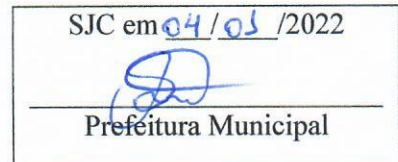 SJC em 04/01/2022
Prefeitura Municipal